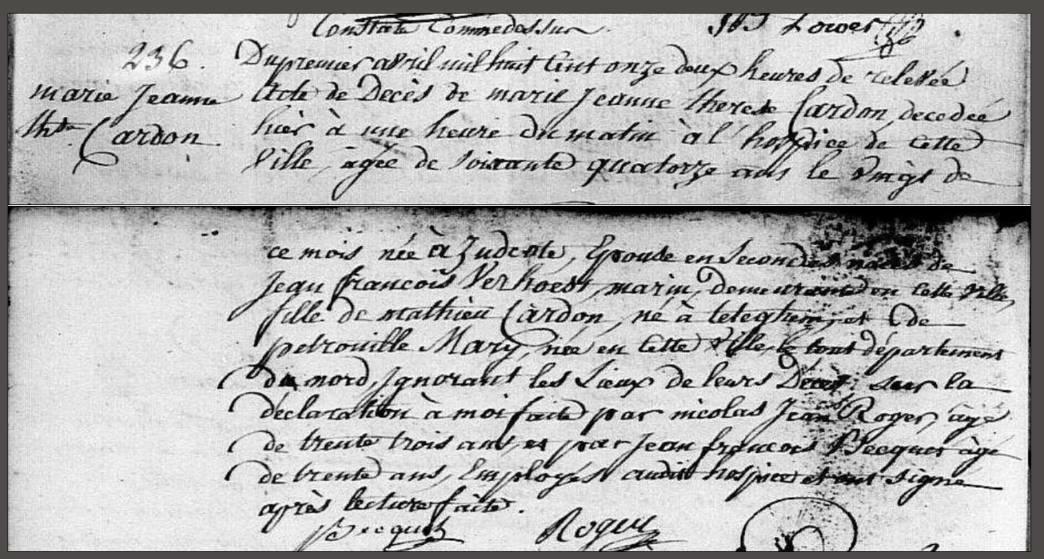 Constaté Comme dessus
236.
marie Jeanne
thse Cardon.
Du premier avril mil huit Cent onze deux heures de relevée
Acte de Decès de marie Jeanne therese Cardon, decedée
hier à une heure du matin à l'hospice de Cette
Ville, agée de soixante quatorze ans le vingt de
ce mois née à Zudcote, Epouse en Secondes noces de
Jean françois Verhoest, marin, demeurante en cette Ville,
fille de mathieu Cardon, né à teteghem, et de
petronille Mary, née en Cette Ville, le tout département
du nord, Ignorant les Lieux de leurs Decès, sur la
déclaration à moi faite par nicolas Jean Roger, agé
de trente trois ans, et par Jean françois Becquet àgé
de trente ans, Employés audit hospice et ont signé
après lecture faite.
Becquet Roger